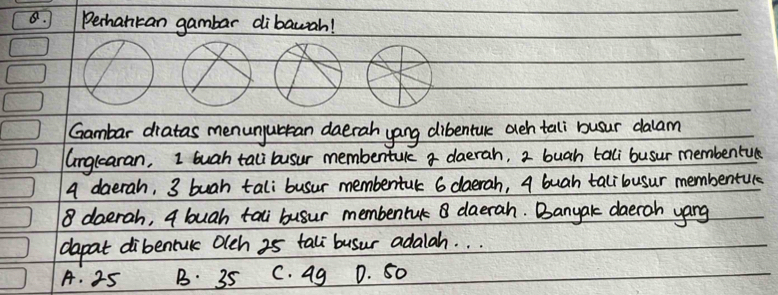 8. Perhatikan gambar dibawah!
Gambar diatas menunjukkan daerah yang dibentuk oleh tali busur dalam
lingkaran, 1 buah tali busur membentuk 2 daerah, 2 buah tali busur membentuk
4 daerah, 3 buah tali busur membentuk 6 daerah, 4 buah tali busur membentuk
8 daerah, 4 buah tali busur membentuk 8 daerah. Banyak daerah yang
dapat dibentuk oleh 25 tali busur adalah...
A. 25 B. 35 C. 49 D. 50